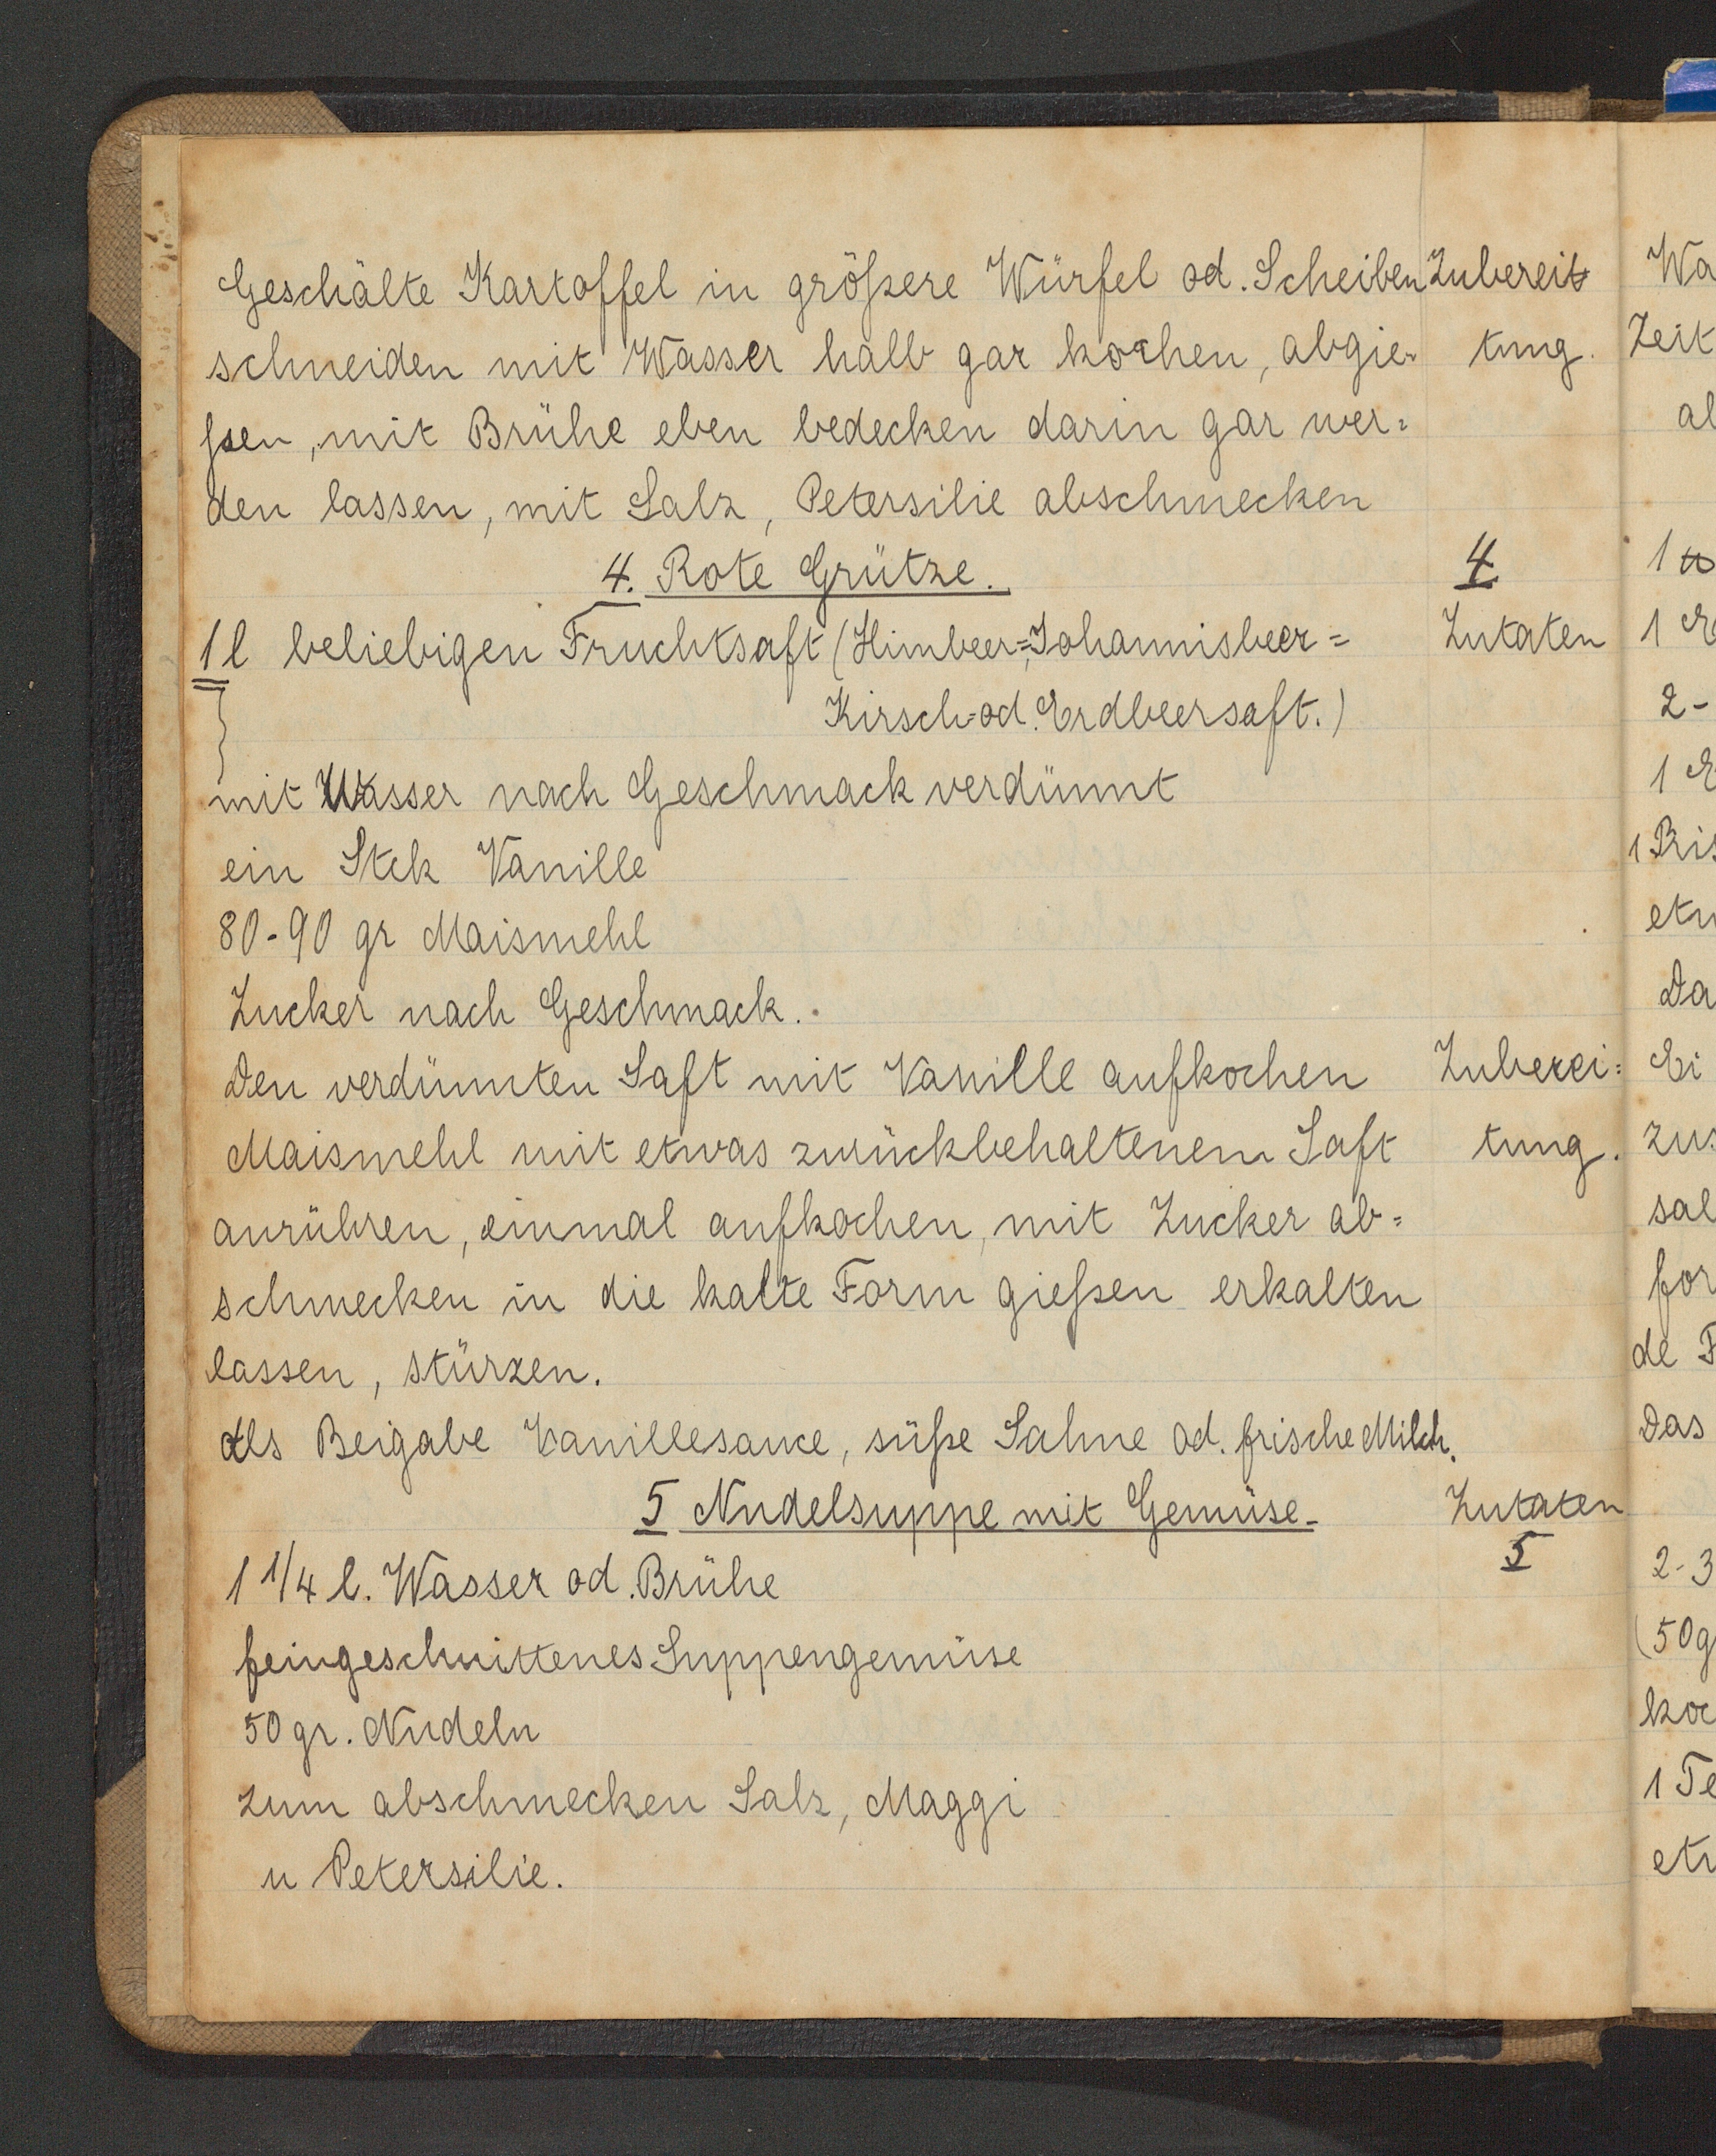 Geschälte Kartoffel in größere Würfel od. Scheiben Zubereit
schneiden mit Wasser halb gar kochen, abgie- tung.
ßen, mit Brühe eben bedecken darin gar wer=
den lassen, mit Salz, Petersilie abschmecken
4. Rote Grütze. 4
1 l beliebigen Fruchtsaft (Himbeer=, Johannisbeer= Zutaten
Kirsch-od. Erdbeersaft.)
mit Wasser nach Geschmack verdünnt
ein Stck Vanille
80-90 gr Maismehl
Zucker nach Geschmack.
Den verdünnten Saft mit Vanille aufkochen Zuberei=
Maismehl mit etwas zurückbehaltenem Saft tung.
anrühren, einmal aufkochen, mit Zucker ab=
schmecken in die kalte Form gießen erkalten
lassen, stürzen.
Als Beigabe Vanillesauce, süße Sahne od. frische Milch.
5 Nudelsuppe mit Gemüse. Zutaten
5
1 1/4 l. Wasser od. Brühe
feingeschnittenes Suppengemüse
50 gr. Nudeln
zum abschmecken Salz, Maggi
u Petersilie.
Wa
Zeit
al
1
1 E
2-
1 E
1 Pris
etw
Da
Ei
zus
sal
for
de F
Das
2-3
(50g
koc
1 Te
etw